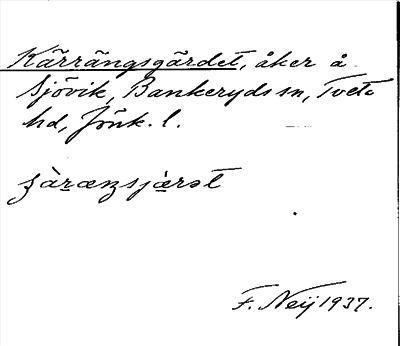 Kärrängsgärdet, åker å
Sjövik, Bankeryds sn, Tveta
hd, Jönk. l.
F. Neij 1937.